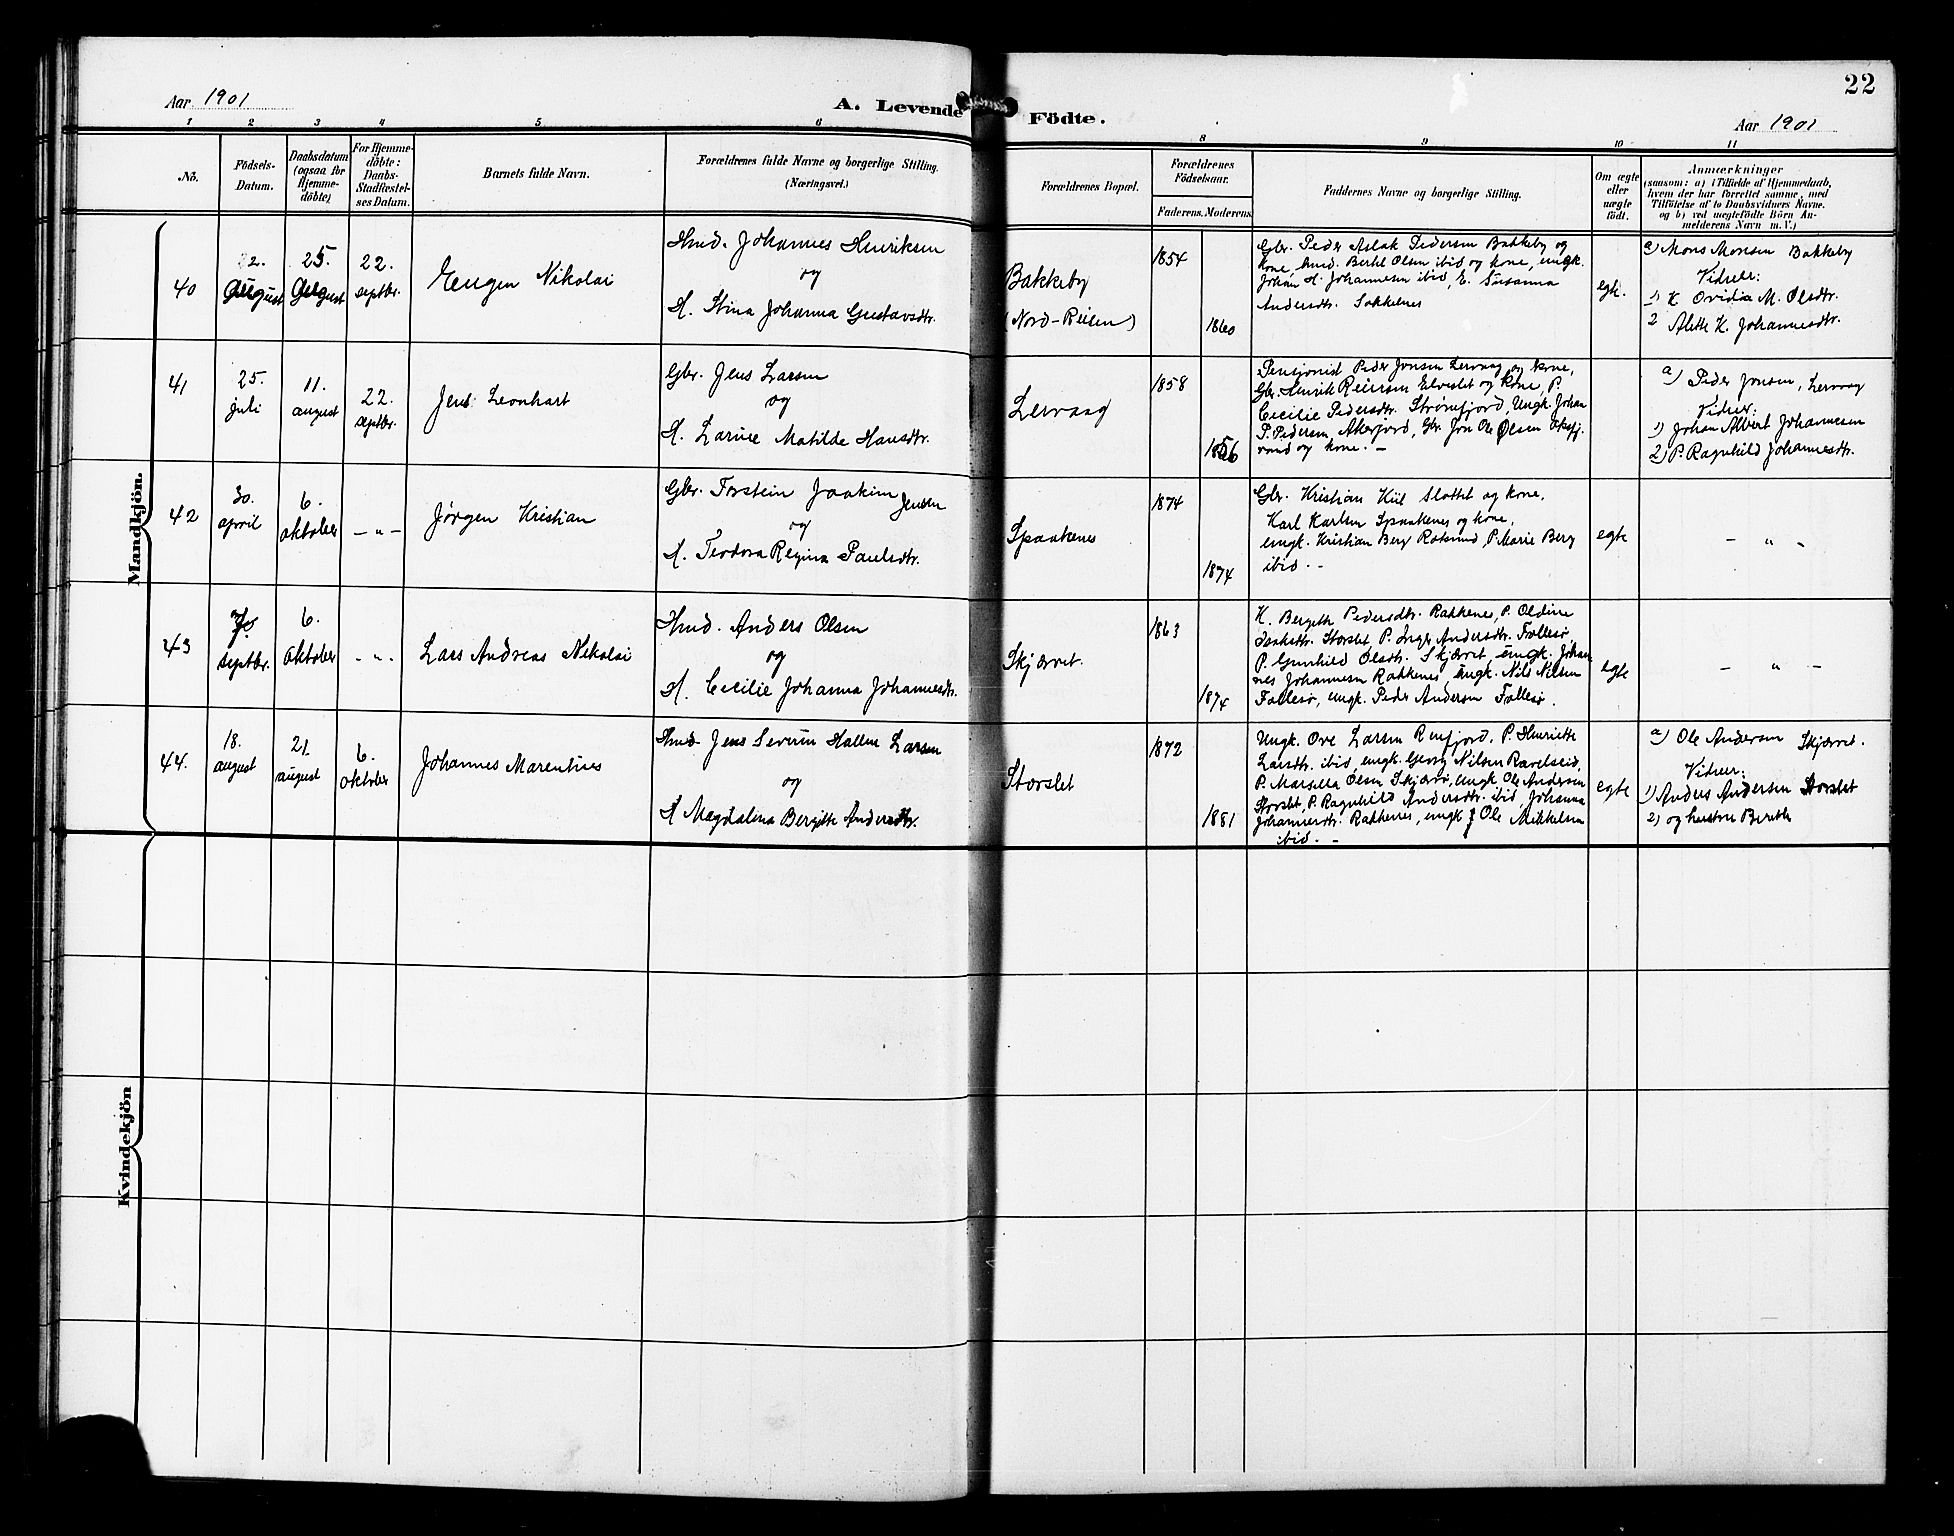 22
Aar 1901
A. Levende Födte.
Aar 1901
1 2 3 4 5 6 8 9 10 11
No.
Födsels-
Datum.
Daabsdatum
(ogsaa for
Hjemme-
döbte)
For Hjemme-
döbte:
Daabs-
Stadfæstel-
ses Datum.
Barnets fulde Navn.
Forældrenes fulde Navne og borgerlige Stilling.
(Næringsvei.)
Forældrenes Bopæl.
Forældrenes
Födselsaar.
Faderens. Moderens.
Faddernes Navne og borgerlige Stilling.
Om ægte
eller
uægte
födt.
Anmærkninger
(saasom: a) i Tilfælde af Hjemmedaab,
hvem der har forrettet samme, med
Tilföielse af to Daabsvidners Navne.
og b) ved uægtefödte Börn An-
melderens Navn m.V.)
Mandkjön.
40
2.
August
25.
August
22.
septbr.
Eugen Nikolai
Smd. Johannes Henriksen
og
H. Stina Johanna Gustavsdtr.
Bakkeby
(Nord-Reisen)
1854
1860
Gbr. Peder Aslak Pedersen Bakkeby og
kone, smd. Bertel Olsen ibid og kone, ungk.
Johan A. Johannesen ibid, E. Susanna
Andersdtr. Sokkenes
egte.
a) Mons Monsen Bakkeby
Vidner:
1) K. Ovidia M. Olsdtr.
2 Alette K. Johannesdtr.
41
25.
juli
11.
august
22.
septbr.
Jens Leonhart
Gbr. Jens Larsen
og
H. Larine Matilde Hansdtr.
Lervaag
1858
1856
Pensjonist Peder Jonsen Lervaag og kone,
Gbr. Henrik Reiersen Elveslet og kone, P.
Cecilie Pedersdtr. Strømfjord, Ungk. Johan
P. Pedersen, Akerfjord, Gbr. Jon Ole Olsen Oksfj
ord og kone. –
a) Peder Jonsen, Lervaag
Vidner:
1) Johan Albert Johannesen
2) P. Ragnhild Johannesdtr.
42
30.
april
6.
oktober
– " –
Jørgen Kristian
Gbr. Torstein Joakim Jensen
og
H. Teodora Regina Paulsdtr.
Spaakenes
1874
1874
Gbr. Kristian Kiil Slottet og kone,
Karl Karlsen Spaakenes og kone,
ungk. Kristian Berg Rotsund, P. Marie Berg
ibid. –
egte
– " –
43
7
septbr.
6.
Oktober
– " –
Lars Andreas Nikolai
Smd. Anders Olsen
og
H. Cecilie Johanna Johannesdtr.
Skjærvet
1863
1874
K. Bergith Pedersdtr. Rakkenes, P. Oldine
Isaksdtr. Storslet P. Inger Andersdtr. Follesø,
P. Gunhild Olsdtr. Skjærvet, ungk. Johan
nes Johannesen Rakkenes, ungk. Nils Nilsen
Follesø, ungk. Peder Andersen Follesø.
egte
– " –
44.
18.
august
21.
august
6.
Oktober
Johannes Marentius
Smd. Jens Severin Larsen
og
H Magdalena Bergitte Andersdtr.
Storslet
1872
1881
Ungk. Ove Larsen Reinfjord, P. Henriette
Larsdtr. ibid, ungk. Georg Nilsen Ravelseid,
P. Marsella Olsen Skjærvø, ungk. Ole Andersen
Storslet, P. Ragnhild Andersdtr. ibid, Johanna
Johannesdtr. Rakkenes, ungk J Ole Mikkelsen
ibid. –
egte
a) Ole Andersen Skjærvet.
Vidner:
1) Anders Andersen Storslet
2) og hustru Berith
Kvindekjön